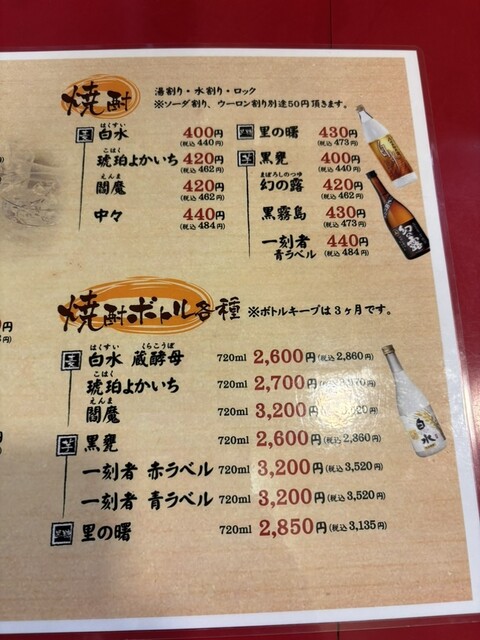 焼酎
湯割り・水割り・ロック
※ソーダ割り、ウーロン割り別途50円頂きます。
麦
はくすい
白水 400円
(税込440円)
こはく
琥珀よかいち 420円
(税込462円)
えんま
閻魔 420円
(税込462円)
中々 440円
(税込484円)
里の曙 430円
(税込473円)
芋 黒甕 400円
(税込440円)
まぼろしのつゆ
幻の露 420円
(税込462円)
黒霧島 430円
(税込473円)
一刻者 440円
青ラベル (税込484円)
幻の露
焼酎ボトル各種 ※ボトルキープは3ヶ月です。
はくすい くらこうぼ
麦 白水 蔵酵母 720ml 2,600円(税込2,860円)
こはく
琥珀よかいち 720ml 2,700円
えんま
閻魔 720ml 3,200円
芋 黒甕 720ml 2,600円(税込2,860円)
一刻者 赤ラベル 720ml 3,200円(税込3,520円)
一刻者 青ラベル 720ml 3,200円(税込3,520円)
里の曙 720ml 2,850円(税込3,135円)
白水